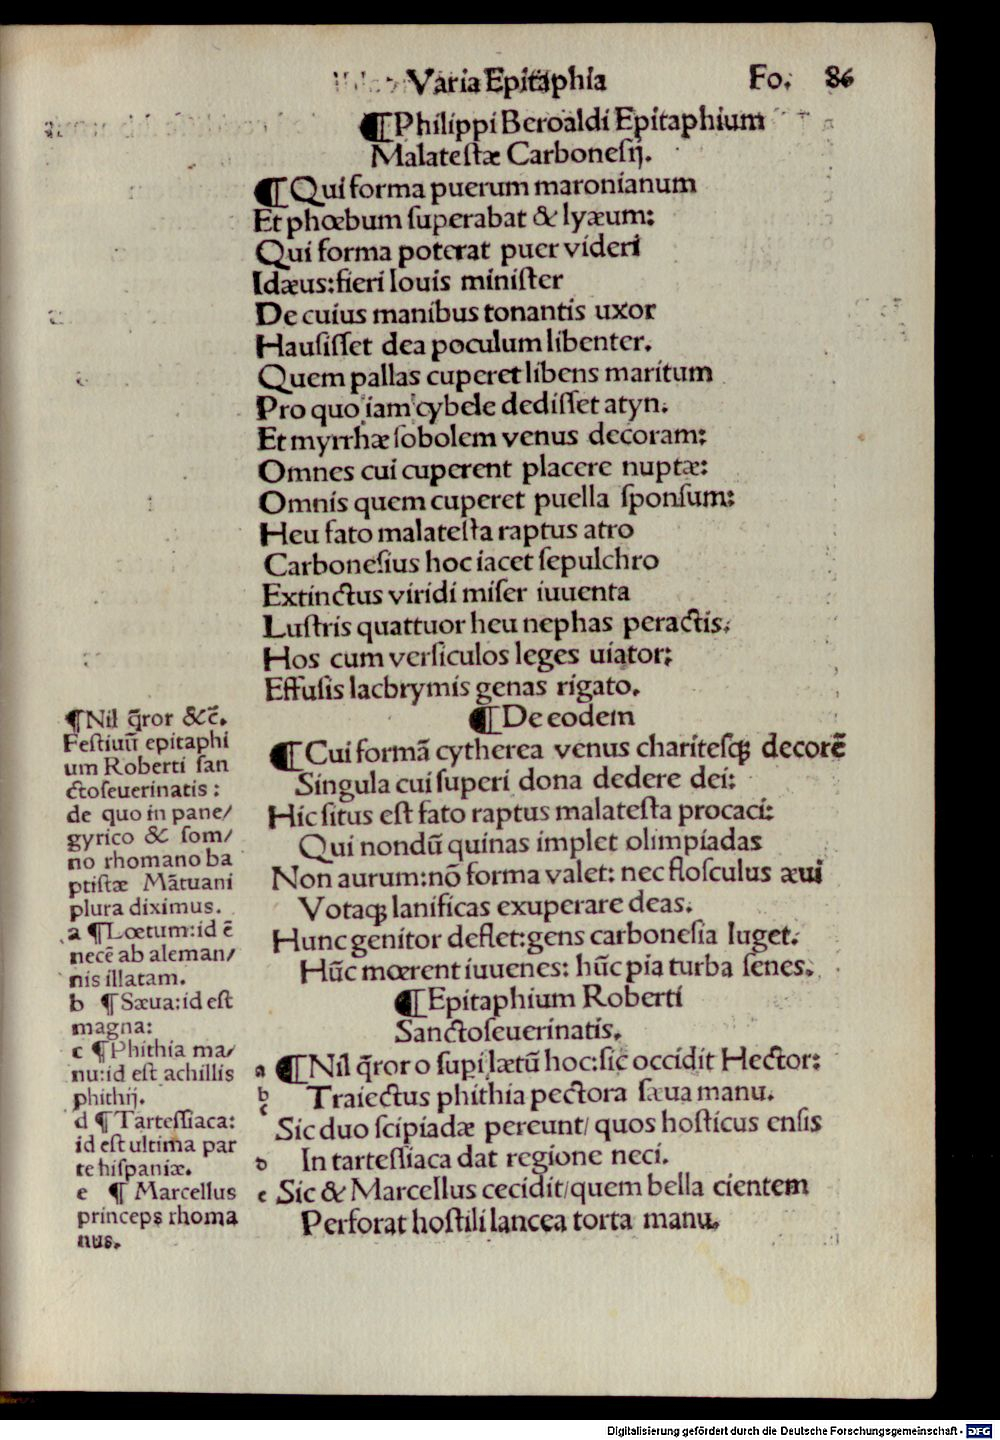 Varia Epitaphia Fo. 86
¶Philippi Beroaldi Epitaphium
Malatestæ Carbonesij.
¶Qui forma puerum maronianum
Et phœbum ſuperabat & lyæum:
Qui forma poterat puer videri
Idæus:fieri Iouis miniſter
De cuius manibus tonantis uxor
Hauſiſſet dea poculum libenter.
Quem pallas cuperet libens maritum
Pro quo iam cybele dediſſet atyn.
Et myrrhæ ſobolem venus decoram:
Omnes cui cuperent placere nuptæ:
Omnis quem cuperet puella ſponſum:
Heu fato malateſta raptus atro
Carboneſius hoc iacet ſepulchro
Extinctus viridi miſer iuuenta
Luſtris quattuor heu nephas peractis.
Hos cum verſiculos leges uiator:
Effuſis lacbrymis genas rigato.
¶De eodem
¶Cui formā cytherea venus chariteſqʒ decorē
Singula cui ſuperi dona dedere dei:
Hic ſitus eſt fato raptus malateſta procaci:
Qui nondū quinas implet olimpiadas
Non aurum:nō forma valet: nec floſculus æui
Votaqʒ lanificas exuperare deas.
Hunc genitor deflet:gens carboneſia luget.
Hūc mœrent iuuenes: hūc pia turba ſenes.
¶Epitaphium Roberti
Sanctoſeuerinatis.
a ¶Nil q̄ror o ſupi lætū hoc:ſic occidit Hector:
b c Traiectus phithia pectora ſæua manu.
Sic duo ſcipiadæ pereunt/ quos hoſticus enſis
d In tarteſſiaca dat regione neci.
e Sic & Marcellus cecidit/quem bella cientem
Perforat hoſtili lancea torta manu.
¶Nil q̄ror &c̄.
Feſtiuū epitaphi
um Roberti ſan
ctoſeuerinatis:
de quo in pane/
gyrico & ſom/
no rhomano ba
ptiſtæ Mātuani
plura diximus.
a ¶Lœtum:id ē
necē ab aleman/
nis illatam.
b ¶Sæua:id eſt
magna:
c ¶Phithia ma/
nu:id eſt achillis
phithij.
d ¶Tarteſſiaca:
id eſt ultima par
te hiſpaniæ.
e ¶ Marcellus
princeps rhoma
nus.
Digitalisierung gefördert durch die Deutsche Forschungsgemeinschaft - DFG